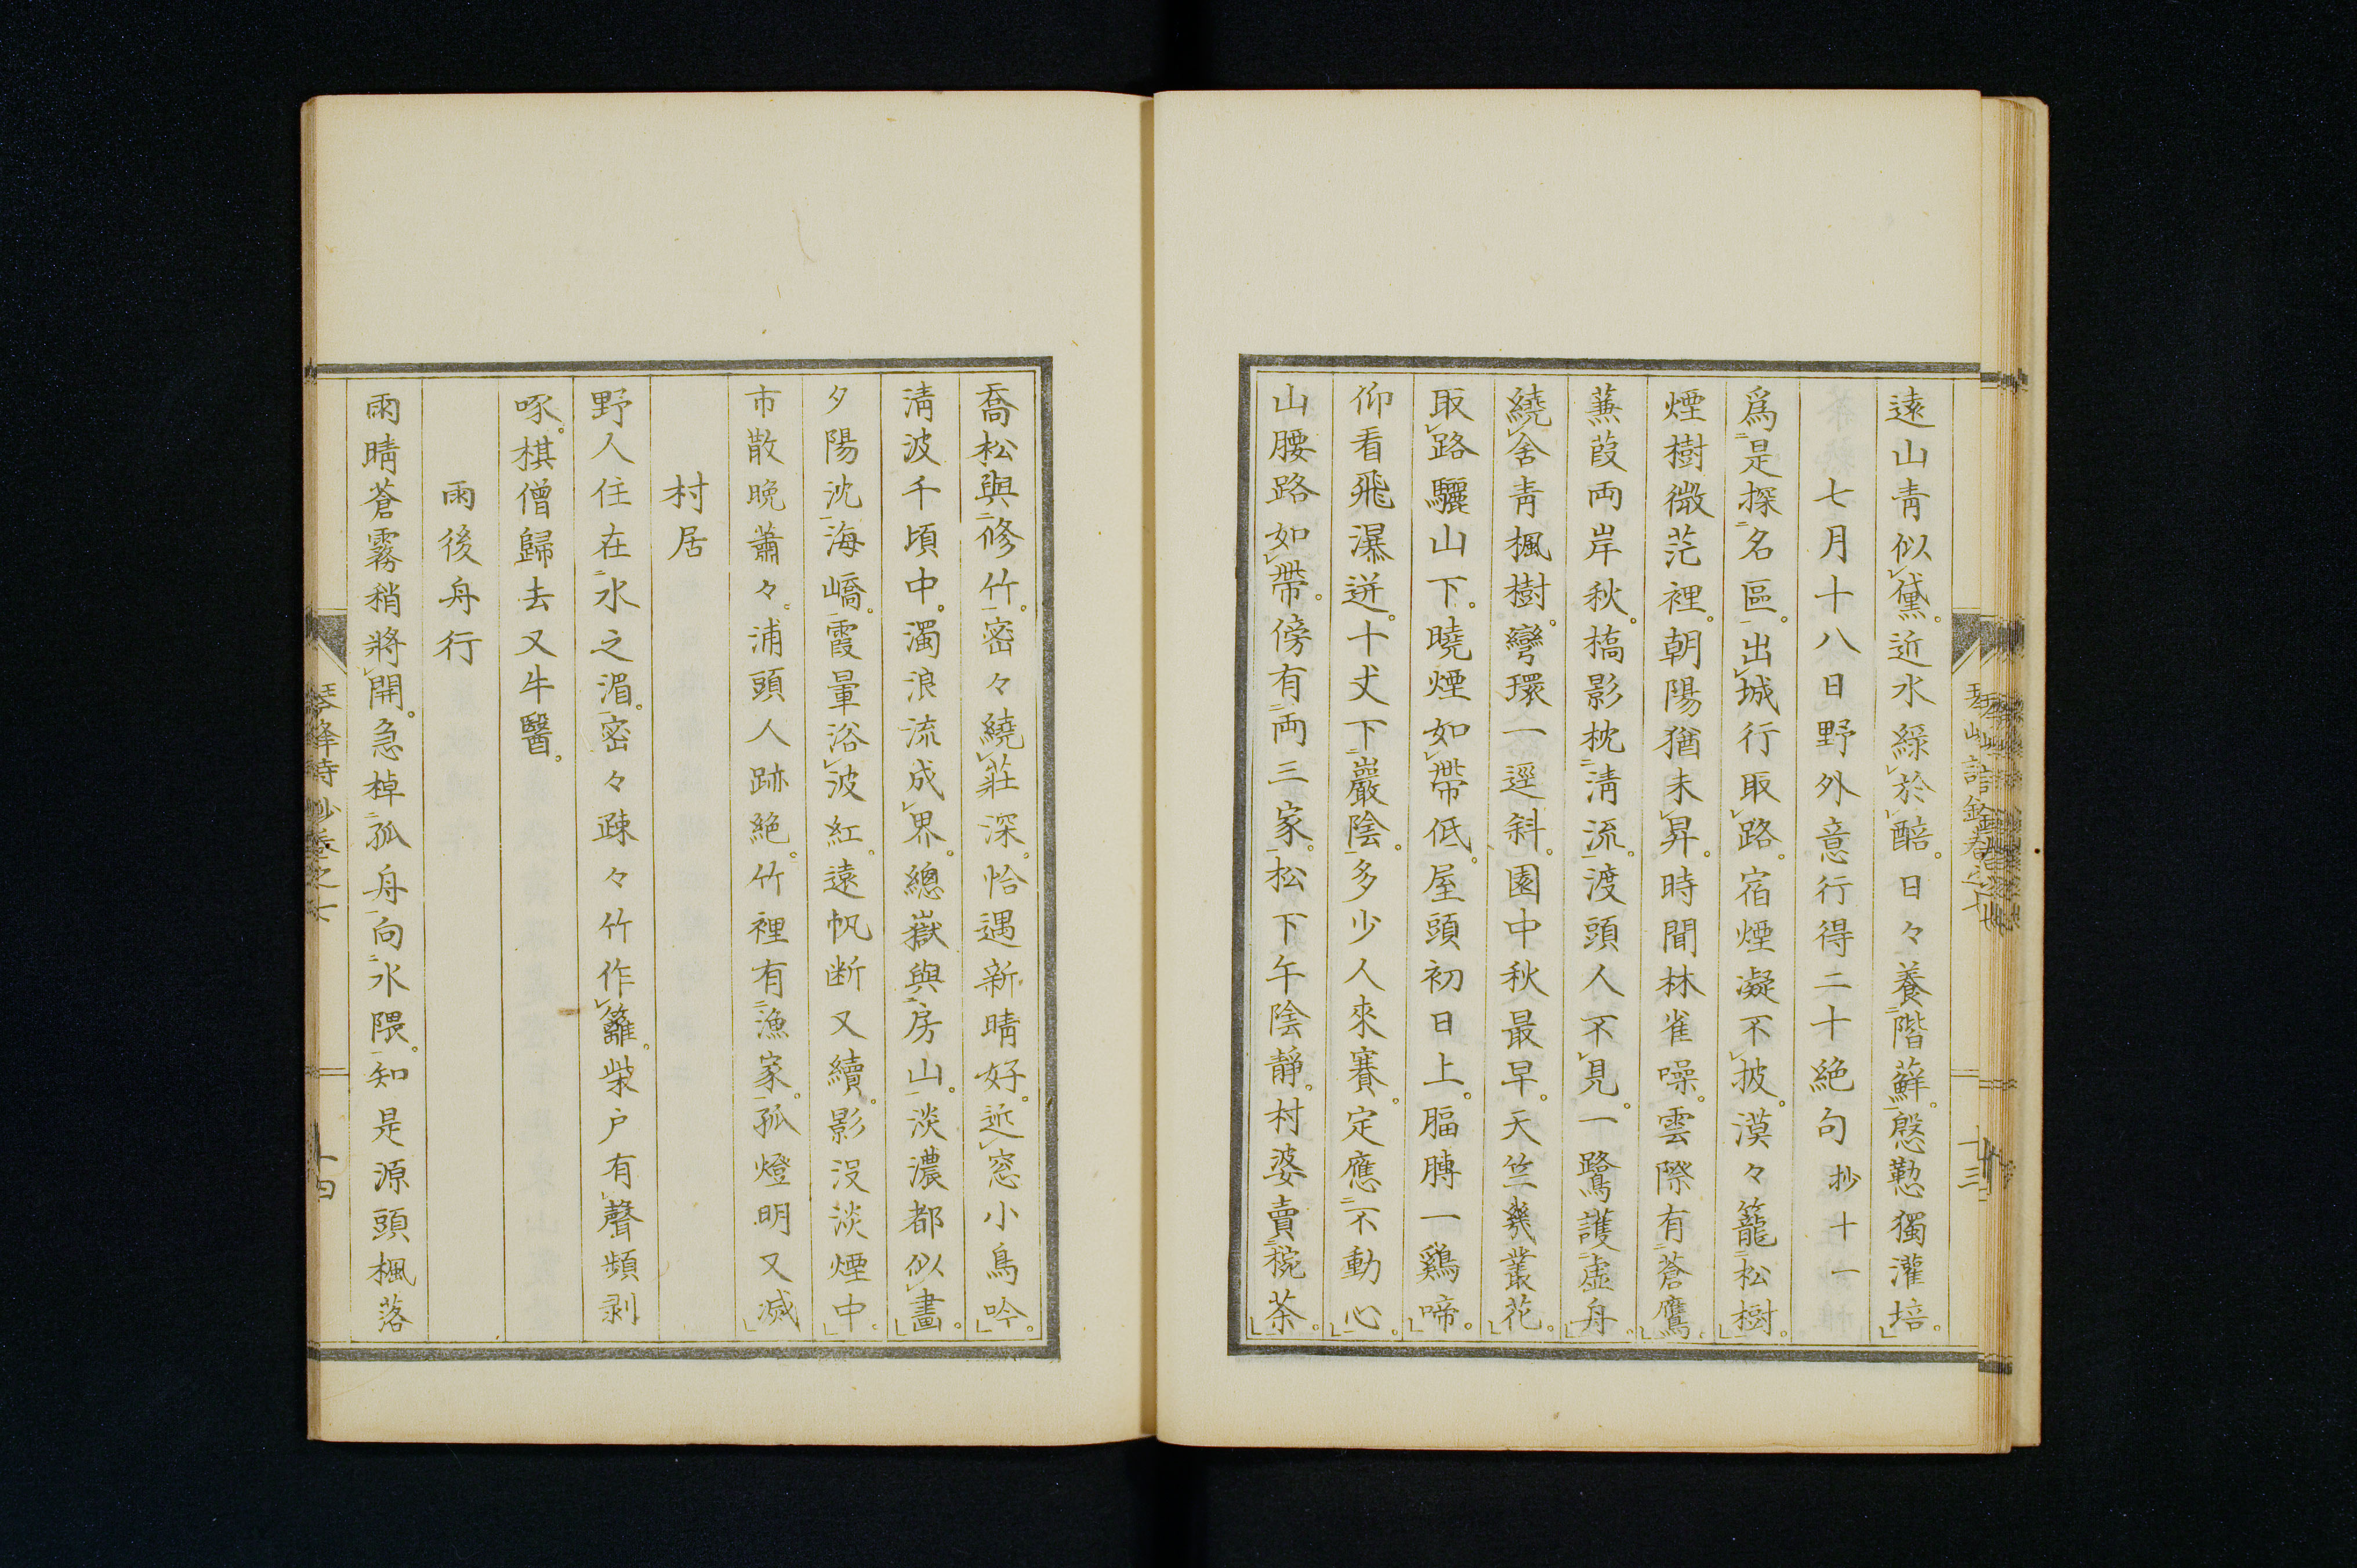 遠山青似黛。近水綠於醅。日々養階蘚。慇懃獨灌培。
七月十八日野外意行得二十絶句 抄十一
爲是探名區。出城行取路。宿煙凝不披。漠々籠松樹。
煙樹微茫裡。朝陽猶未昇。時聞林雀噪。雲際有蒼鷹。
蒹葭両岸秋。橋影枕清流。渡頭人不見。一鷺護虚舟。
繞舍青楓樹。彎環一逕斜。園中秋最早。天竺幾叢花。
取路驪山下。曉煙如帶低。屋頭初日上。腷膊一鷄啼。
仰看飛瀑迸。十丈下巖陰。多少人來賽。定應不動心。
山腰路如帶。傍有両三家。松下午陰靜。村婆賣椀茶。
喬松與修竹。密々繞莊深。恰遇新晴好。近窓小鳥吟。
清波千頃中。濁浪流成界。總嶽與房山。淡濃都似畫。
夕陽沈海嶠。霞暈浴波紅。遠帆断又續。影没淡煙中。
市散晩蕭々。浦頭人跡絶。竹裡有漁家。孤燈明又滅
村居
野人住在水之湄。密々疎々竹作籬。柴戸有聲頻剥
啄。棋僧歸去又牛醫。
雨後舟行
雨晴蒼霧稍將開。急棹孤舟向水隈。知是源頭楓落
十四